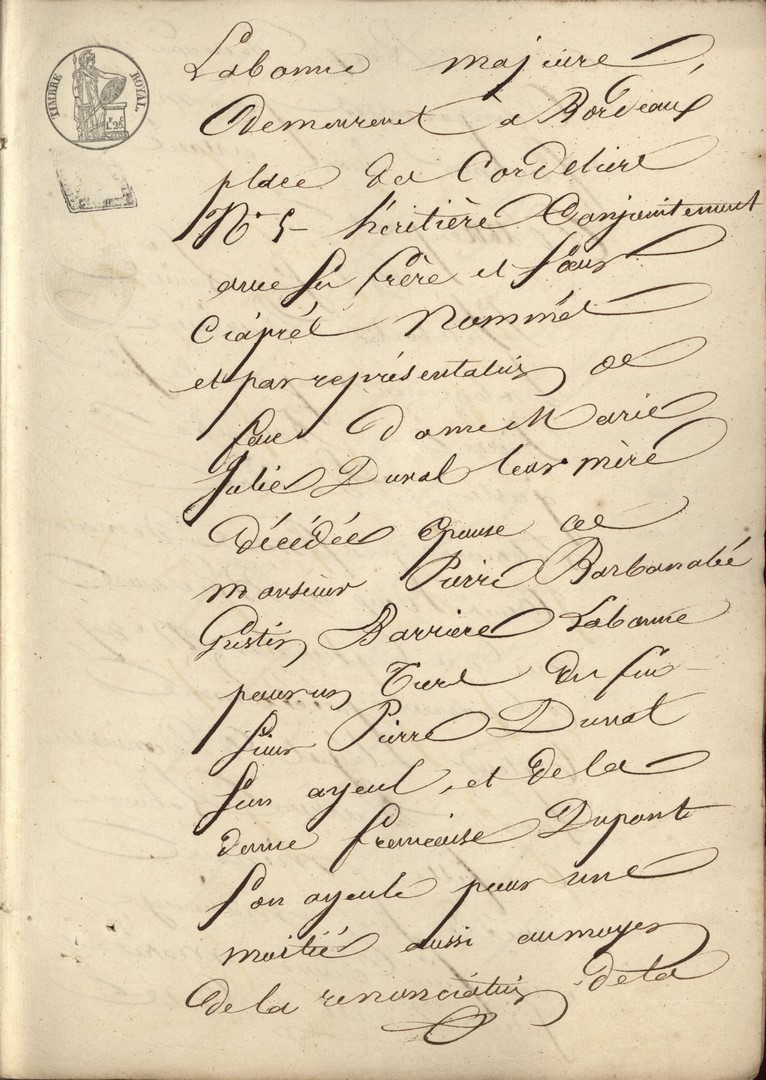 TIMBRE ROYAL
Labonne majeure,
Demeurent à Bordeaux
place des Cordeliers
N° 5 héritière Conjointement
avec ses frère et sœurs
Ciáprés Nommés
et par représentation de
feue Dame Marie
Julie Duval leur mère
décédée épouse de
monsieur Pierre Barbanabé
Justin Barriere Labonne
pour un Tiers du feu
sieur Pierre Duval
son ayeul, et de la
dame francoise Dupont
son ayeule pour une
moitié aussi au moyen
de la renonciation de la